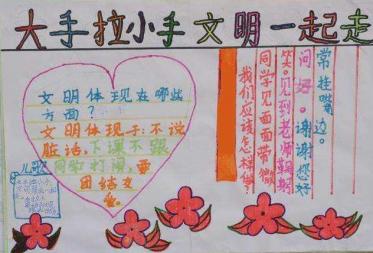 大手拉小手文明一起走
文明体现在哪些
方面?
文明体现于:不说
脏话,下课不跟
同学打闹,要
团结友
爱。
儿歌
常挂嘴边。
问好。谢谢您好
笑。见到老师鞠躬
同学见面面带微
我们应该怎样做?